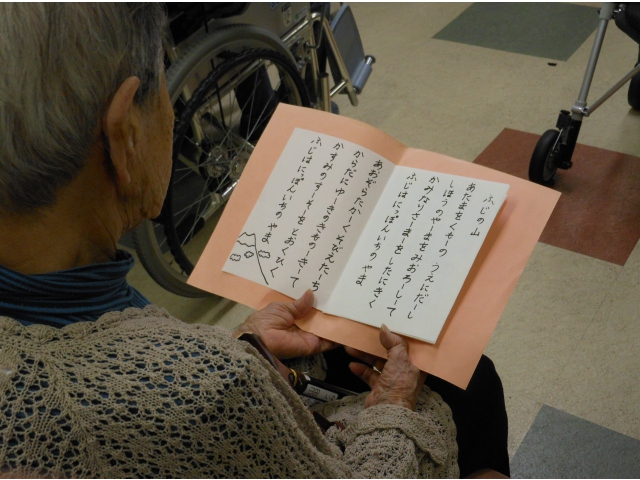 ふじの山
あたまをくもの　うえにだーし
しほうのやーまをみおろしーて
かみなりさーまーをしたにきく
ふじはにっぽんいちのやま
あおぞらたかーくそびえたーち
からだにゆーきのきものきーて
かすみのすーそーをとおくひく
ふじはにっぽんいちのやま